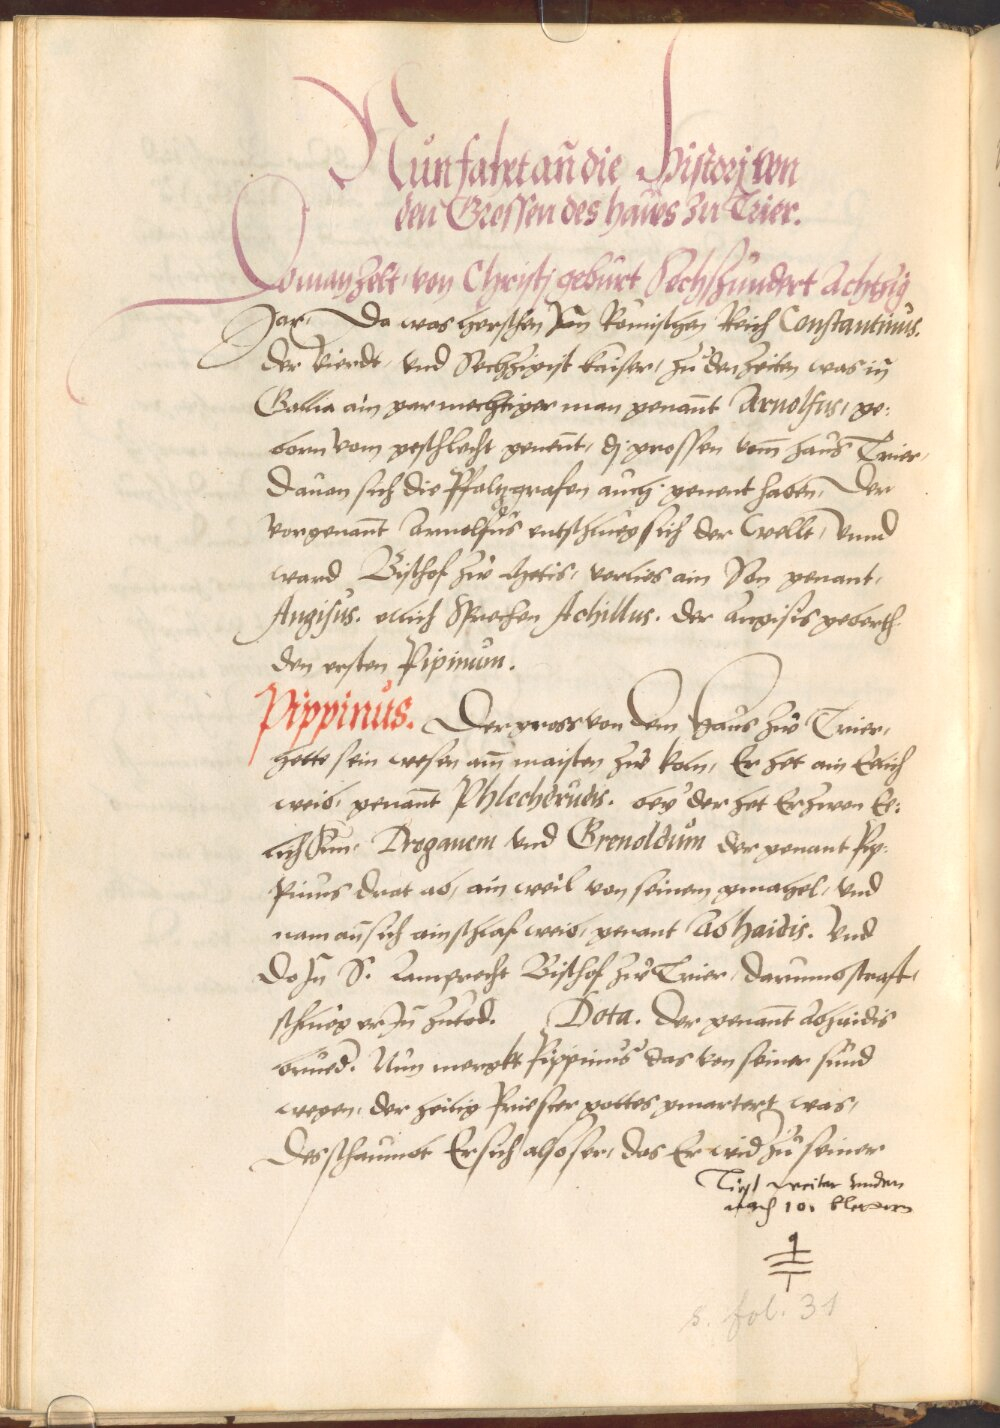 Nun fahrt an die Histori von
den Grossen des haws zu Trier.
Do man zelt, von Christj geburt Sechshundert Achtzig
Jar, Da was herschen Im Römischen Reich Constantinus.
der vierdt, und Sechtzigist kaiser, zu den zeiten was in
Gallia ain gar mechtiger man genant Arnolfus, ge:
born vom geschlecht genent, dj grossen vom haus Trier,
davon sich die Pfaltzgrafen auch genent haben, Der
vorgenant Arnolfus entschlueg sich der wellt, unnd
ward Bischof zw Metis, verlies ain Son genant,
Angisus. etlich Sprechen Achillus. der Angisis geberth
den ersten Pipinum.
Pippinus. Der gross von dem Haus zw Trier,
hette sein wesen am maisten zw koln, Er het ain Eelich
weib, genant Phlecherudis. bey der het Er zwen Ee:
lich Sun, Droganem und Grenoldum der genant Pip:
Pinus drat ab, ain weil von seinem gmahel, und
nam an sich ain schlaf weib, genant Abhaidis. Und
do In S. Lamprecht Bischof zw Trier, darumb straft,
schlueg er In zutod. Dota. der genant Abhaidis
brued. Nun mergkt Pippinus das von seiner sünd
wegen, der heilig Priester gottes gmartert was,
Des schaumbt Er sich also ser, das Er wid zu seiner
weiter unden
nach 10. blettern
s. fol. 31